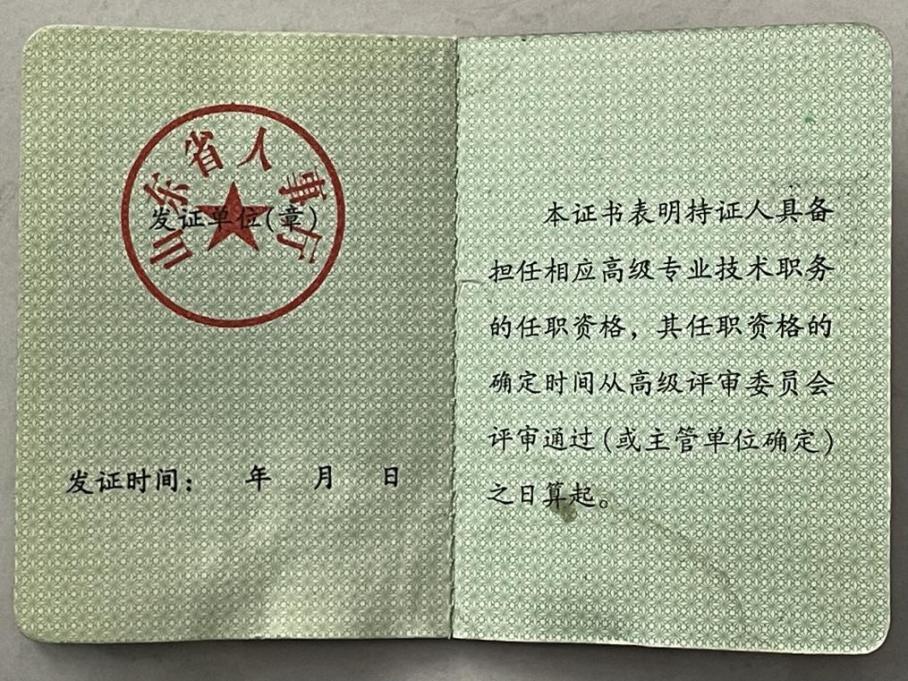 山东省人事厅
发证单位(章)
发证时间： 年 月 日
本证书表明持证人具备
担任相应高级专业技术职务
的任职资格，其任职资格的
确定时间从高级评审委员会
评审通过(或主管单位确定)
之日算起。